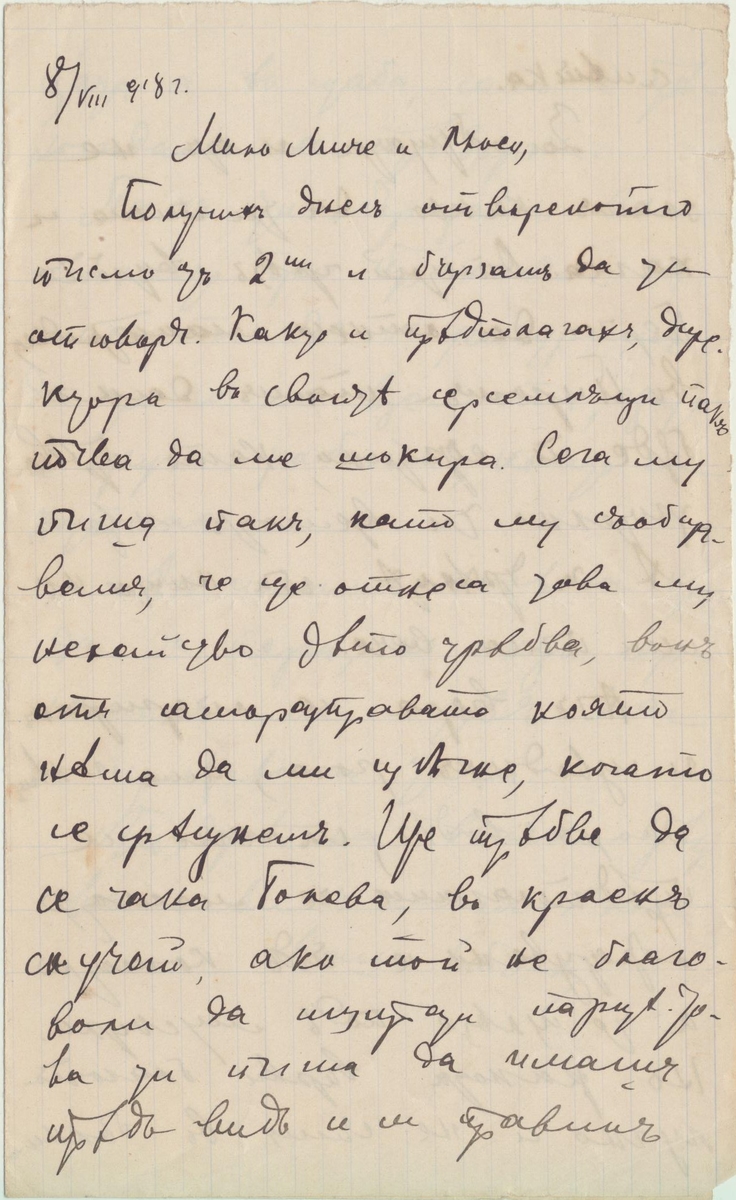 8/VIII 918 г.
Мило Миче и Пносе,
Получихъ днесъ отвореното
писмо отъ 2ий и бързамъ да ти
отговоря. Както и прѣдполагахъ, дире-
ктора въ своитѣ пакъ
да ме шокира. Сега му
пиша пакъ, като му съобща-
вамъ, че ще отнеса това му
дѣто трѣбва, вонъ
отъ саморазправата която
нѣма да ми избѣгне, когато
се срѣщнемъ. Ще трѣбва да
се чака Гонева, въ краенъ
случай, ако той не благо-
воли да изпрати паритѣ. То-
ва ти пиша да имашъ
прѣдъ видъ и и правишъ